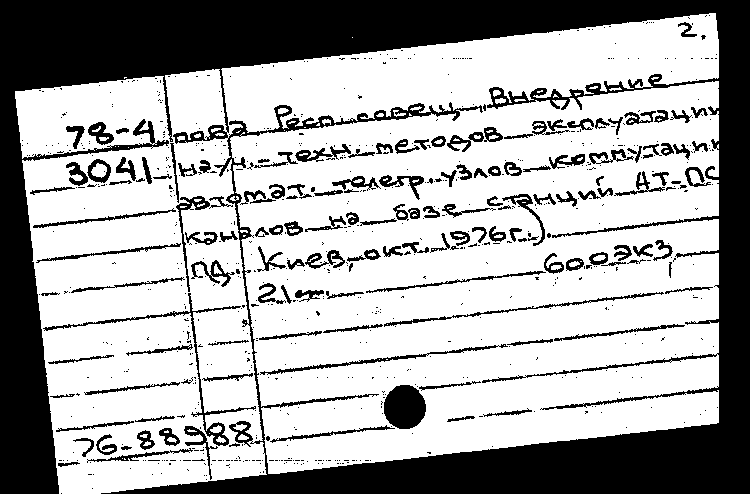 2.
78-4 пова Респ. совещ. „Внедрение
3041 науч.-техн. методов эксплуатации
автомат. телегр. узлов коммутации
каналов на базе станций АТ-ПС
ПД. Киев, окт. 1976г.).
21 см. 600экз.
76-88988.